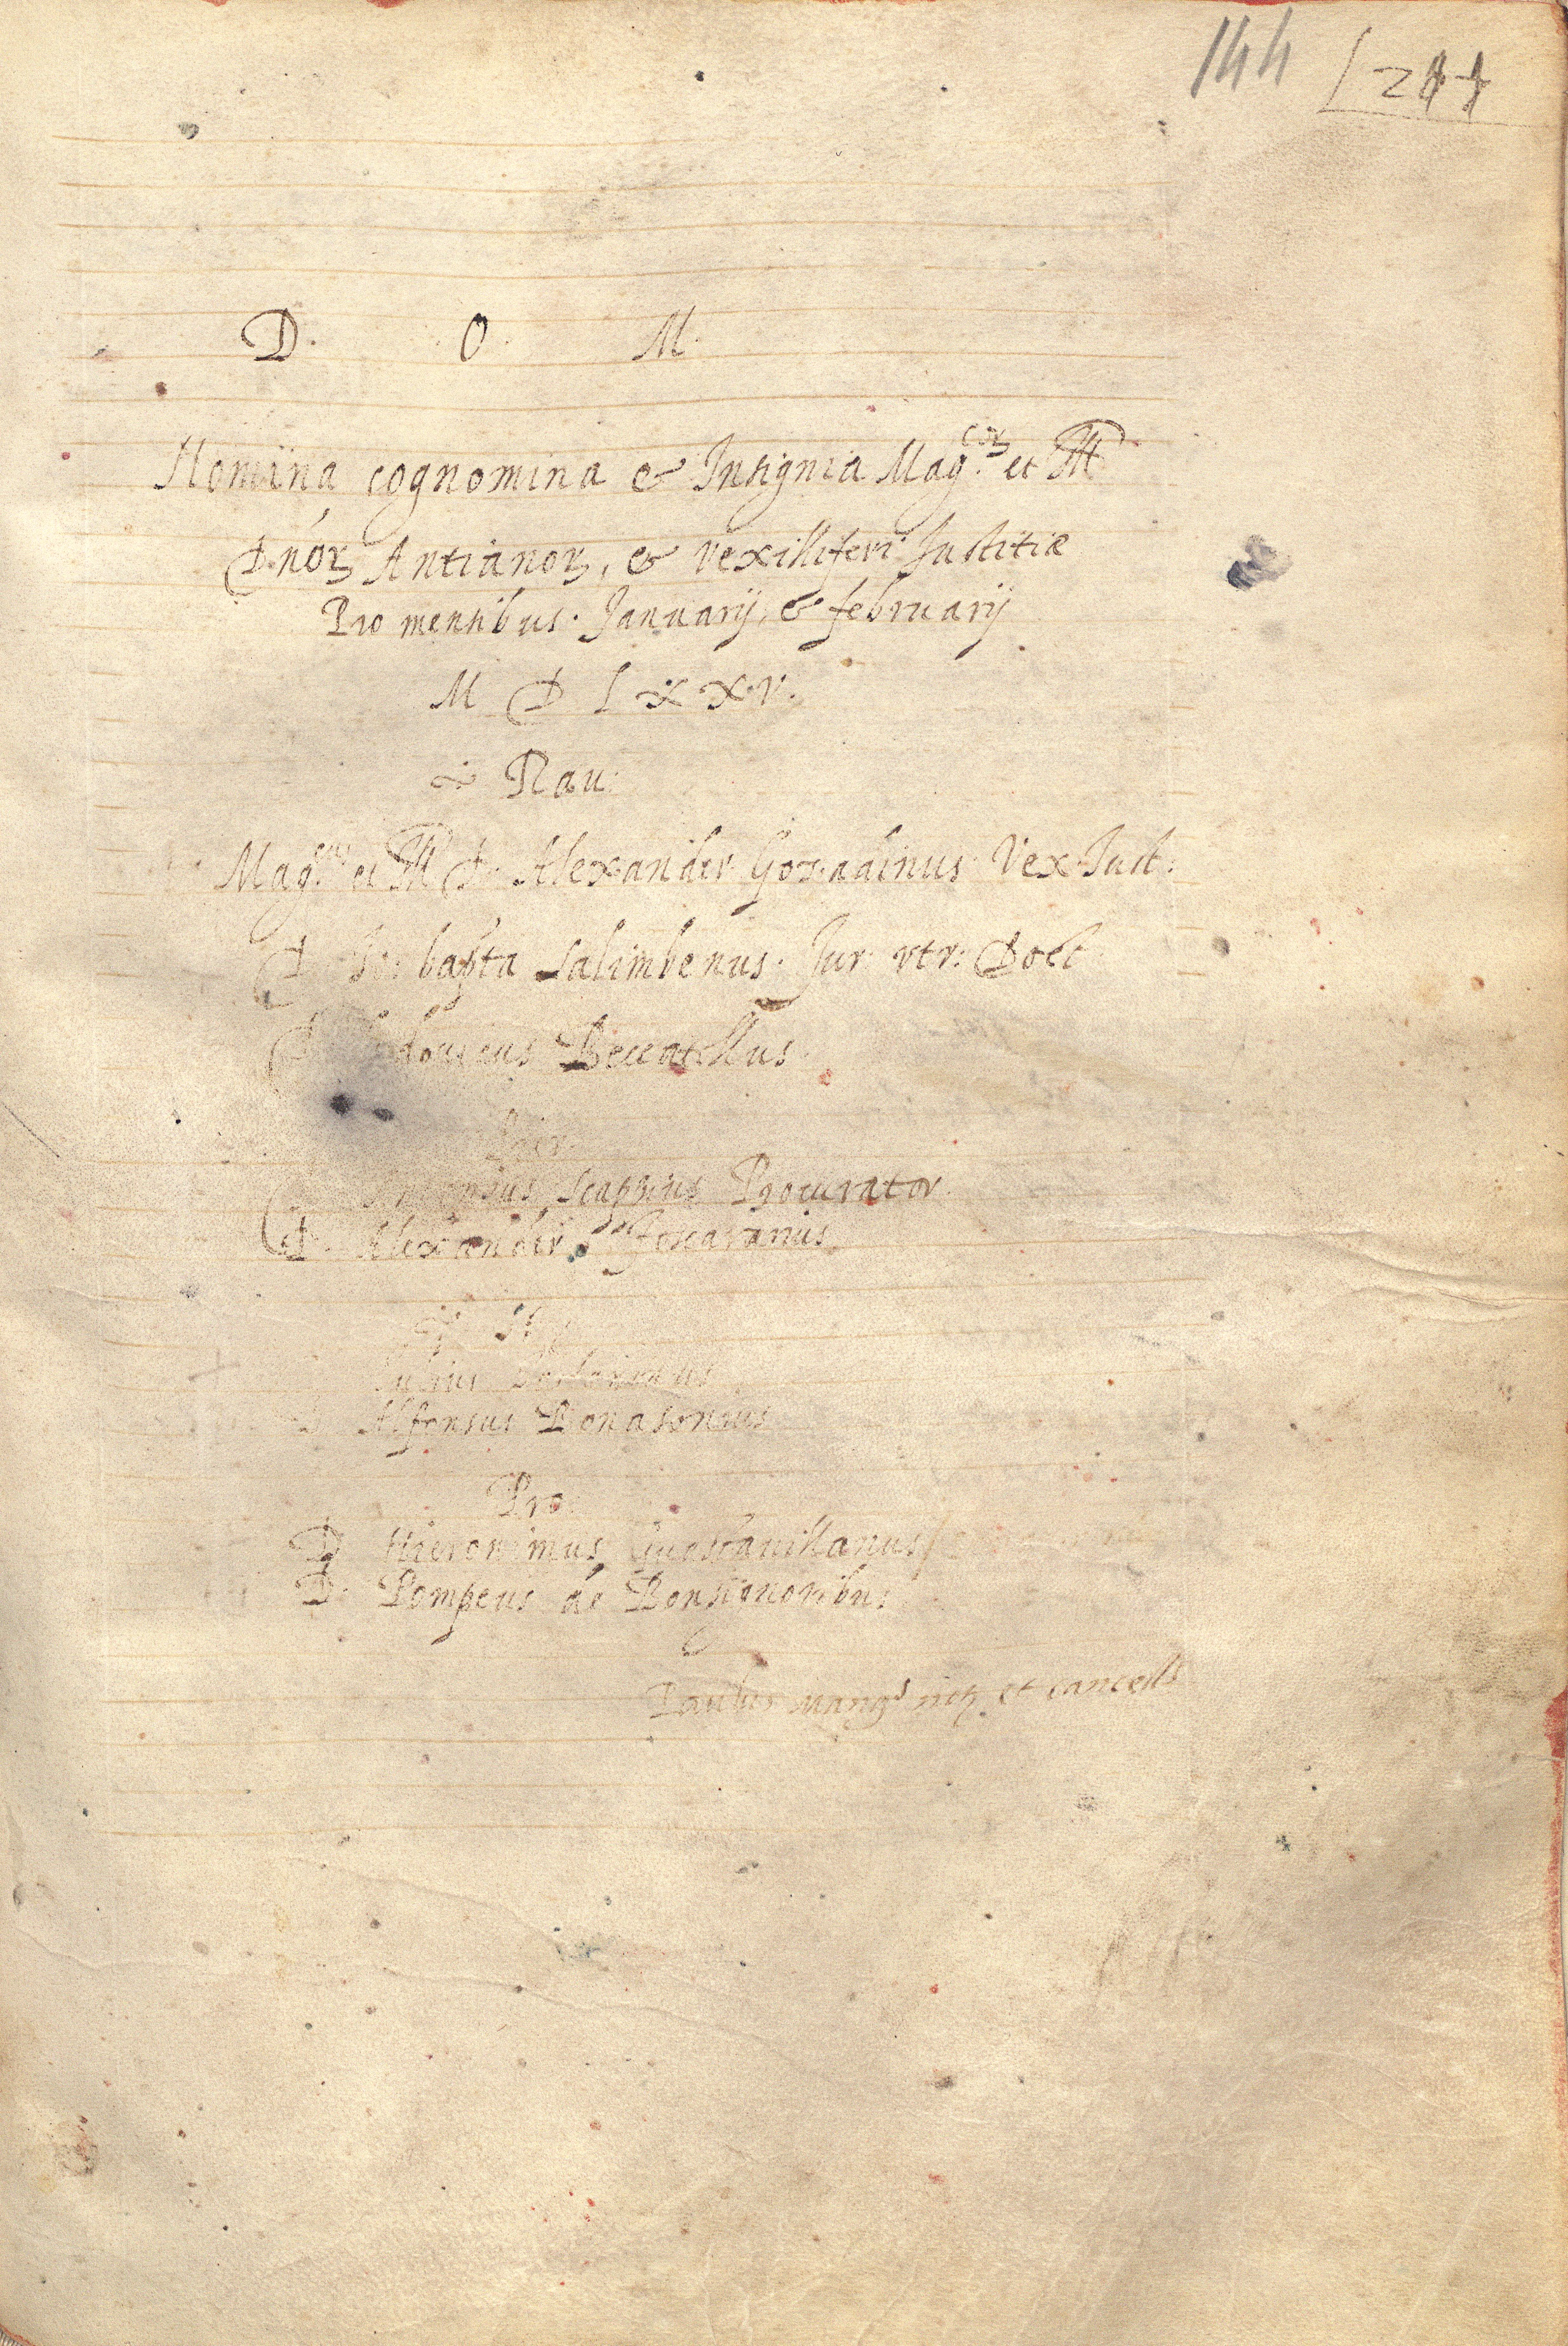 144
D. O. M.
Nomina cognomina & Insignia Mag.cor et Ill
D.nor Antianor, & vexilliferi Justitiæ
Pro mensibus. Januarij, & februarij
M D L X X V.
Rav:
Mag.cus et Ill D. Alexander Gozadinus Vex. Just:
D Jo: bapta Salimbenus. Jur. vtr: Doct
D Beccatellus.
Antonius Scappius Procurator.
D. Alexander Foscararius
St
Julius
D Alfonsus Bonasonius
Pro:
D Hieronimus Guastavillanus
D. Pompeus de Bonsignoribus
Paulus not et cancell